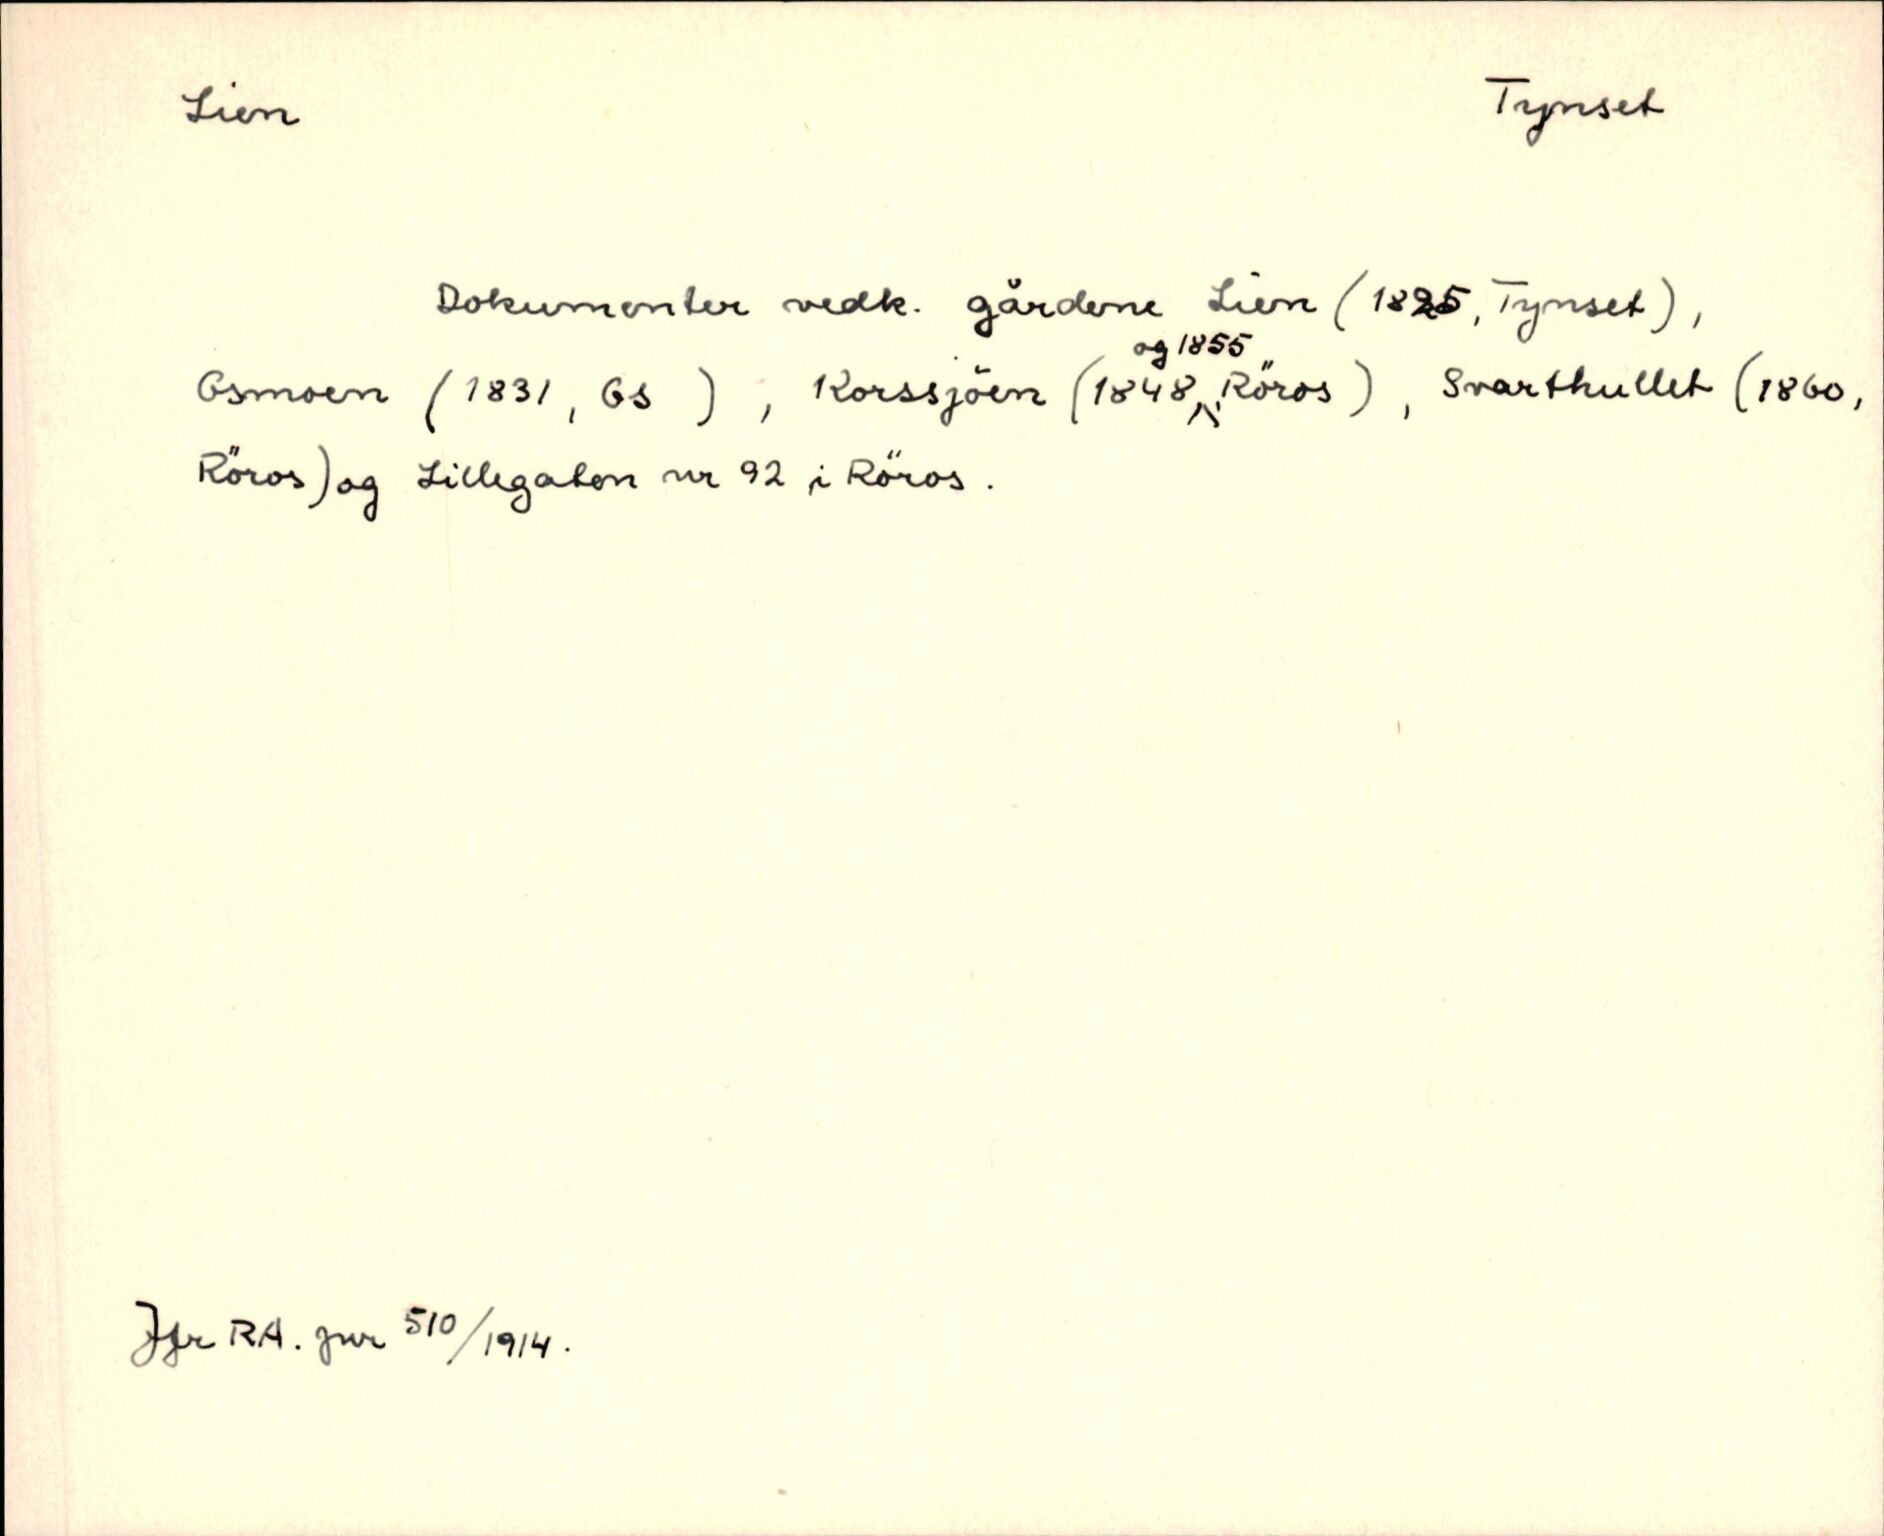 Lien Tynset
Dokumenter vedk. gårdene Lien (1825, Tynset),
Osmoen (1831, Os ), Korssjöen (1848 og 1855, Röros), Svarthullet (1860,
Röros) og Lillegaten nr 92 i Röros.
Jfr RA. jnr 510/1914.